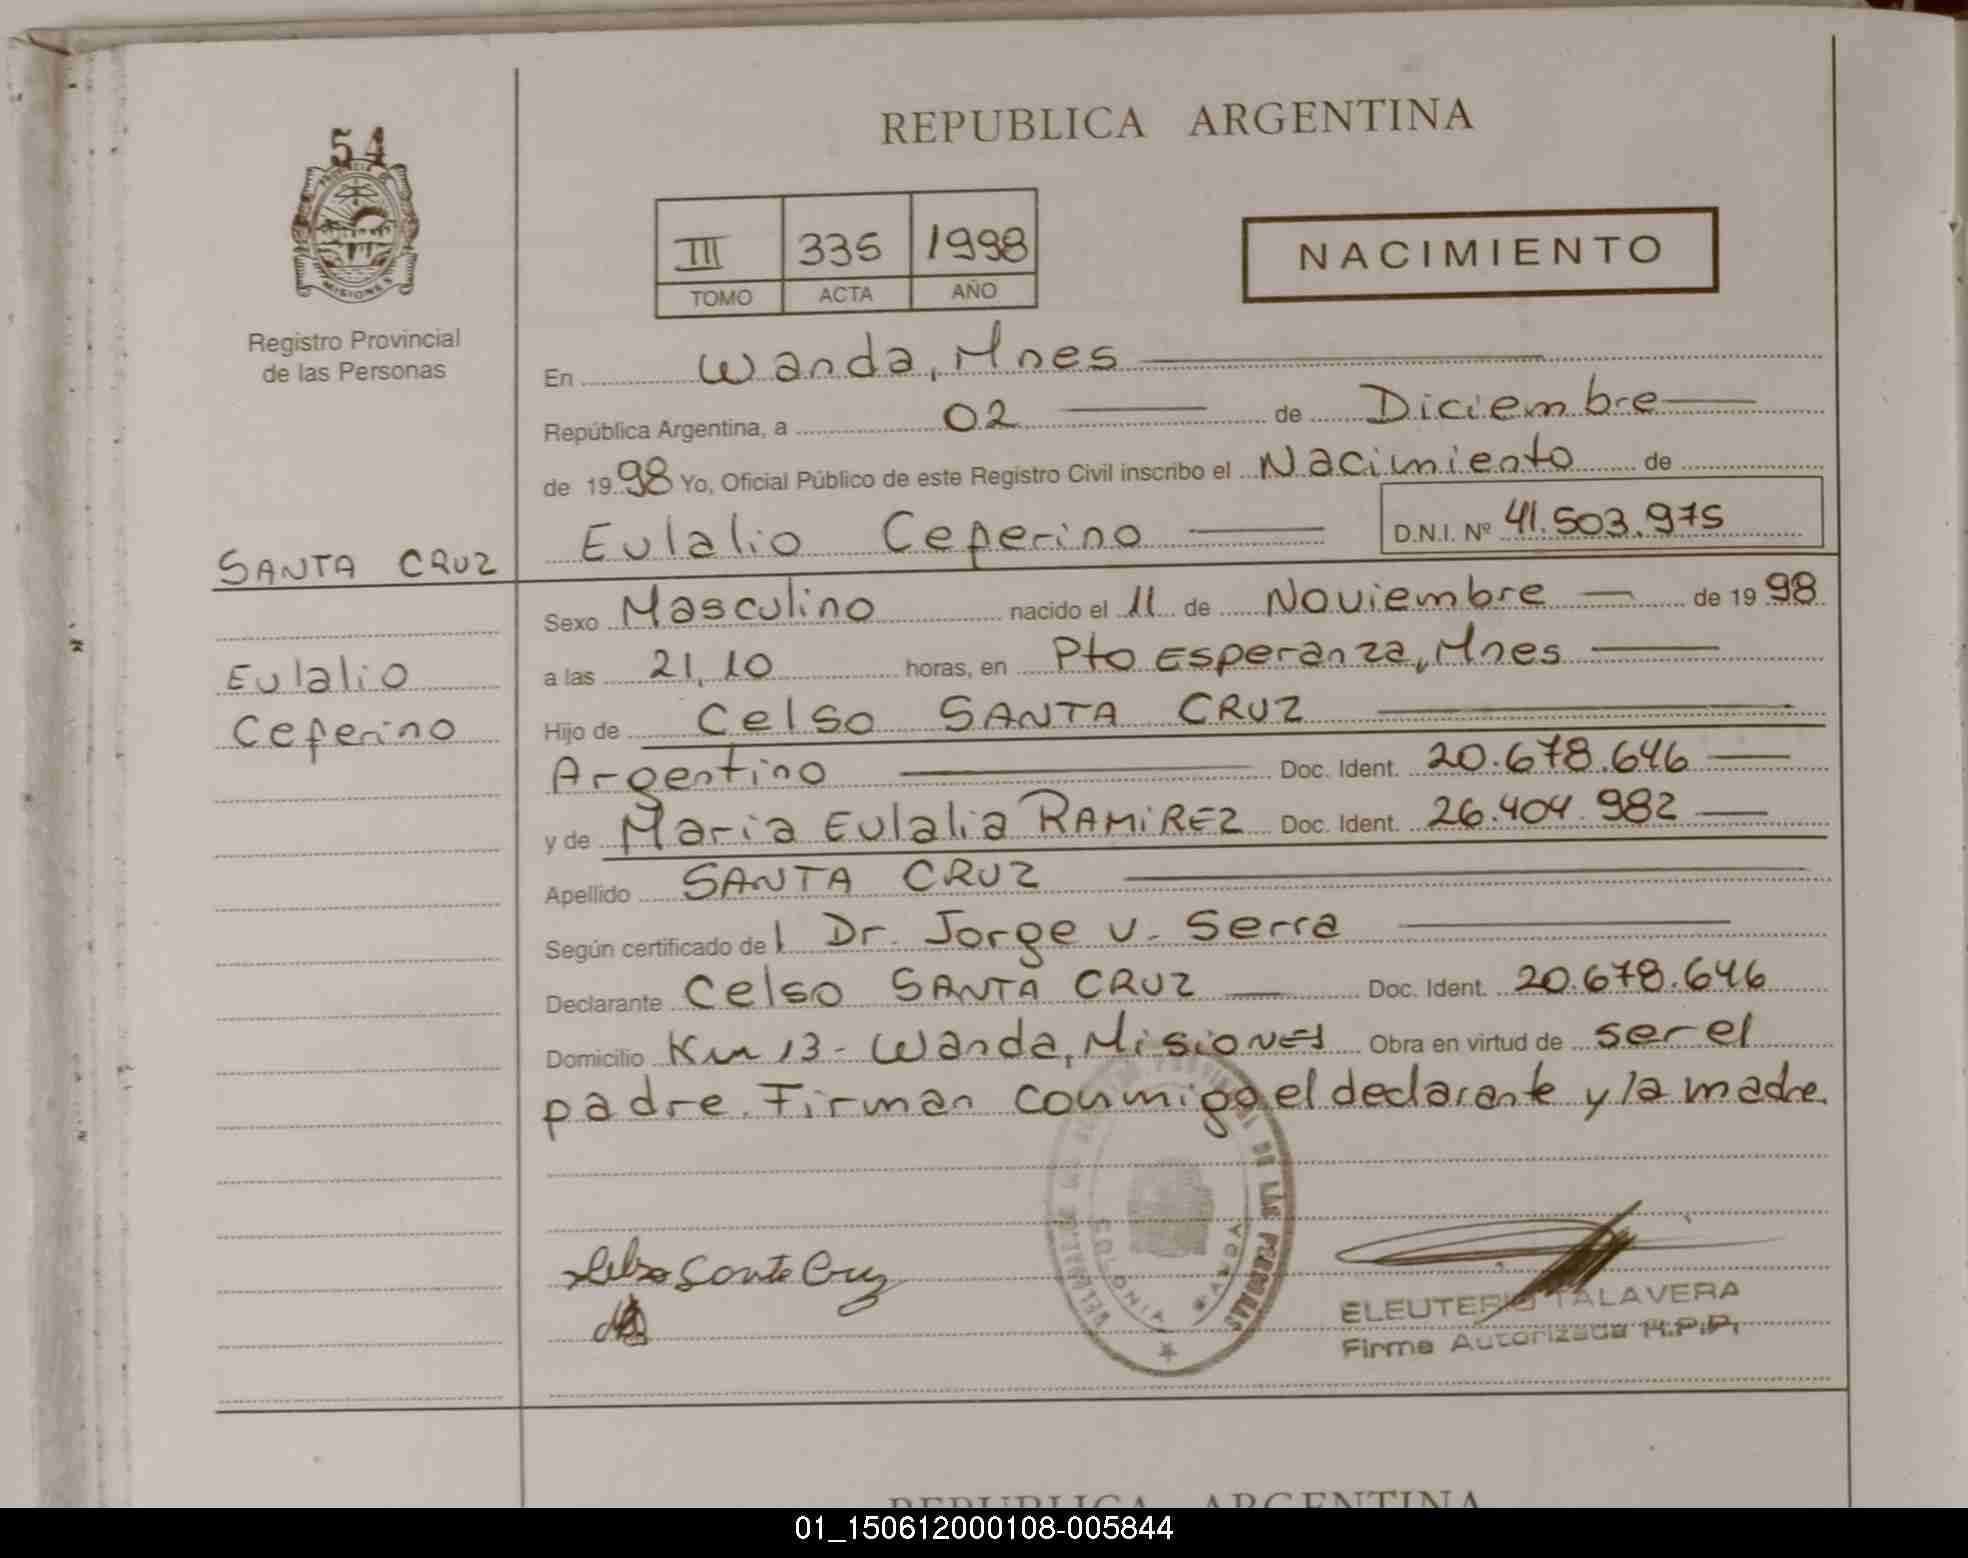 54
PROVINCIA DE
MISIONES
Registro Provincial
de las Personas
SANTA CRUZ
Eulalio
Ceferino
REPUBLICA ARGENTINA
III 335 1998
TOMO ACTA AÑO
NACIMIENTO
En Wanda, Mnes
República Argentina, a 02 de Diciembre
de 1998 Yo, Oficial Público de este Registro Civil inscribo el Nacimiento de
Eulalio Ceferino D.N.I. Nº 41.503.975
Sexo Masculino nacido el 11 de Noviembre de 1998
a las 21,10 horas, en Pto Esperanza, Mnes
Hijo de Celso SANTA CRUZ
Argentino Doc. Ident. 20.678.646
y de Maria Eulalia RAMIREZ Doc. Ident. 26.404.982
Apellido SANTA CRUZ
Según certificado del Dr. Jorge V. Serra
Declarante Celso SANTA CRUZ Doc. Ident. 20.678.646
Domicilio Km 13 - Wanda, Misiones Obra en virtud de ser el
padre. Firman conmigo el declarante y la madre.
DE LAS PERSONAS
COLONIA WANDA
Celso Santa Cruz
ELEUTERIO TALAVERA
Firma Autorizada R.P.P.
REPUBLICA ARGENTINA
01_150612000108-005844